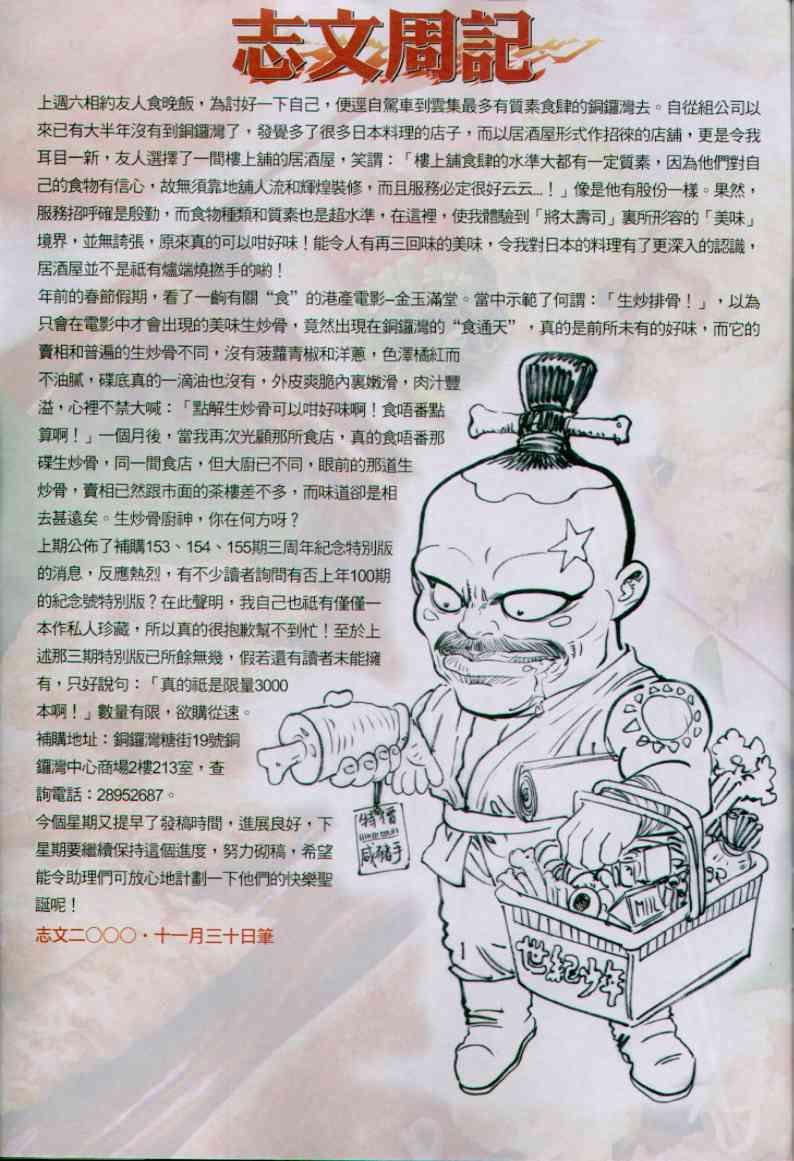 志文周記
上週六相約友人食晚飯，為討好一下自己，便逕自駕車到雲集最多有質素食肆的銅鑼灣去。自從組公司以
來已有大半年沒有到銅鑼灣了，發覺多了很多日本料理的店子，而以居酒屋形式作招徠的店舖，更是令我
耳目一新，友人選擇了一間樓上舖的居酒屋，笑謂：「樓上舖食肆的水準大都有一定質素，因為他們對自
己的食物有信心，故無須靠地舖人流和輝煌裝修，而且服務必定很好云云...！」像是他有股份一樣。果然，
服務招呼確是殷勤，而食物種類和質素也是超水準，在這裡，使我體驗到「將太壽司」裏所形容的「美味」
境界，並無誇張，原來真的可以咁好味！能令人有再三回味的美味，令我對日本的料理有了更深入的認識，
居酒屋並不是祗有爐端燒撚手的喲！
年前的春節假期，看了一齣有關“食”的港產電影–金玉滿堂。當中示範了何謂：「生炒排骨！」，以為
只會在電影中才會出現的美味生炒骨，竟然出現在銅鑼灣的“食通天”，真的是前所未有的好味，而它的
賣相和普遍的生炒骨不同，沒有菠蘿青椒和洋蔥，色澤橘紅而
不油膩，碟底真的一滴油也沒有，外皮爽脆內裏嫩滑，肉汁豐
溢，心裡不禁大喊：「點解生炒骨可以咁好味啊！食唔番點
算啊！」一個月後，當我再次光顧那所食店，真的食唔番那
碟生炒骨，同一間食店，但大廚已不同，眼前的那道生
炒骨，賣相已然跟市面的茶樓差不多，而味道卻是相
去甚遠矣。生炒骨廚神，你在何方呀？
上期公佈了補購153、154、155期三周年紀念特別版
的消息，反應熱烈，有不少讀者詢問有否上年100期
的紀念號特別版？在此聲明，我自己也祗有僅僅一
本作私人珍藏，所以真的很抱歉幫不到忙！至於上
述那三期特別版已所餘無幾，假若還有讀者未能擁
有，只好說句：「真的祗是限量3000
本啊！」數量有限，欲購從速。
補購地址：銅鑼灣糖街19號銅
鑼灣中心商場2樓213室，查
詢電話：28952687。
今個星期又提早了發稿時間，進展良好，下
星期要繼續保持這個進度，努力砌稿，希望
能令助理們可放心地計劃一下他們的快樂聖
誕呢！
志文二〇〇〇・十一月三十日筆
特價
咸豬手
MILK
世紀少年